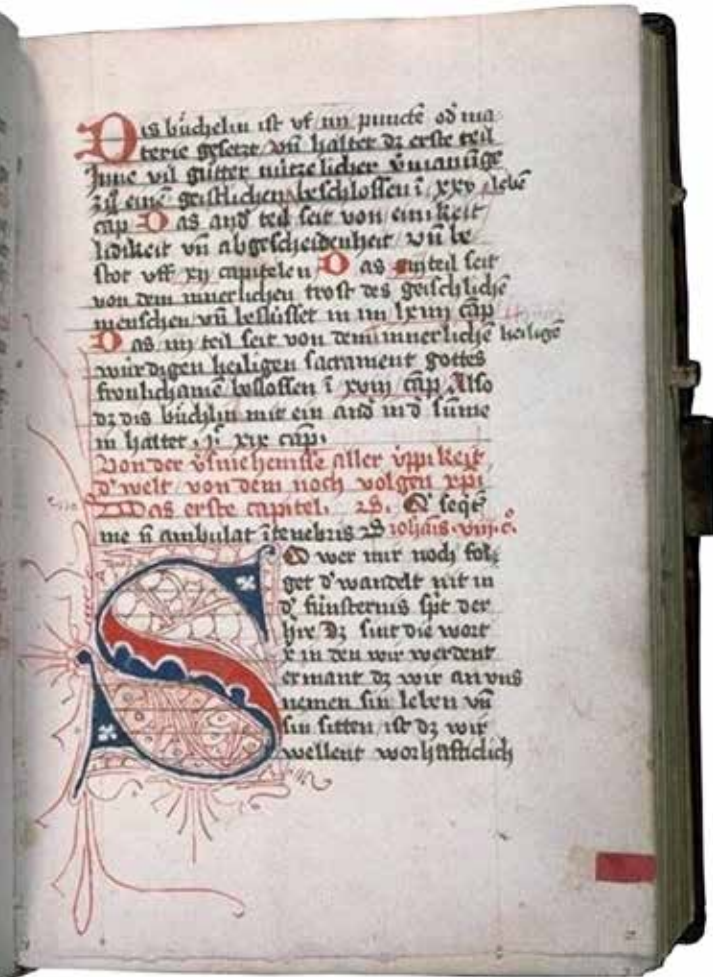 Dis büchelin ist vf iiij puncte od ma
terie gesetzt vñ haltet dz erste teil
Inne vil gůtter nützelicher v̄manūge
zů eine geistlichen beschlossen ī xxv lebē
cap Das and teil seit von einikeit
lidikeit vñ abgescheidenheit vñ be
stot vff xij capitelen Das iij teil seit
von dem innerlichen trost des geischlichē
menschen vñ beslüsset in im lxiiij cap
Das iiij teil seit von dem innerlichē heiligē
würdigen heiligen sacrament gottes
fronlichame beslossen ī xviij cap Also
dz dis büchlin mit ein and in d sūme
in haltet xix cap.
Von der v̄smehenisse aller v̄ppikeit
d' welt von dem noch volgen xpi
Das erste capitel. Q seqt
me ñ ambulat ītenebris Johais. viij. c.
SO wer mir noch fol
get d' wandelt nit in
d' finsternis spt der
hre Dz sint die wort
in den wir werdent
ermant dz wir an vns
nemen sin leben vñ
sin sitten ist dz wir
wellent worhafticlich